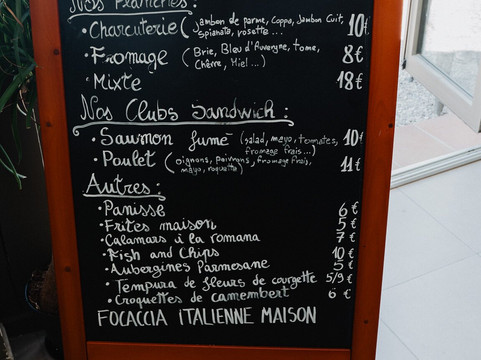 Nos Planches :
• Charcuterie ( Jambon de parme, Coppa, Jambon Cuit, 10€
spianata, rosette ...
• Fromage ( Brie, Bleu d'Auvergne, tome, 8€
Chèvre, Miel ...)
• Mixte 18€
Nos Clubs Sandwich :
• Saumon fumé (salad, mayo, tomates, 10€
fromage frais...)
• Poulet ( oignons, poivrons, fromage frais, 11€
mayo, roquette)
Autres :
• Panisse 6€
• Frites maison 5€
• Calamars à la romana 7€
• Fish and Chips 10€
• Aubergines Parmesane 5€
• Tempura de fleurs de courgette 5/9€
• Croquettes de camembert 6€
FOCACCIA iTALIENNE MAISON